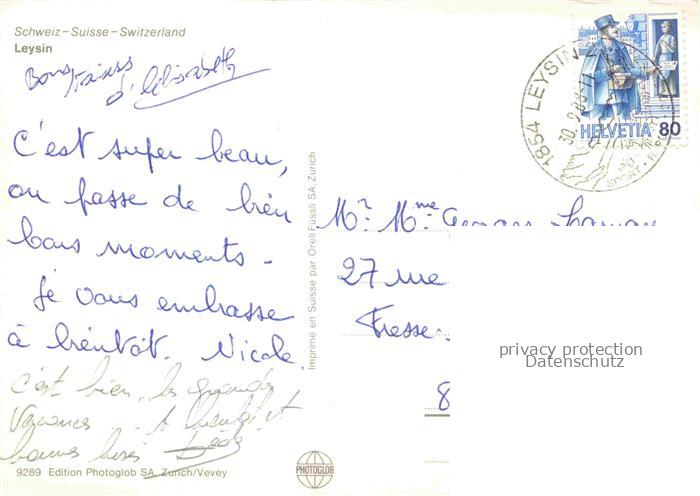 Schweiz-Suisse-Switzerland
Leysin
Bons baisers
d'Elisabeth
C'est super beau,
on passe de bien
bons moments.
Je vous embrasse
à bientôt. Nicole.
C'est bien, les grandes
vacances. A bientôt et
bonnes bises
9289 Edition Photoglob SA, Zürich/Vevey
Imprimé en Suisse par Orell Füssli SA, Zurich
PHOTOGLOB
1854 LEYSIN
30.9.88-11
SPORT
HELVETIA 80
Mr. Mme Georges
27 rue
Fresse
8
privacy protection
Datenschutz